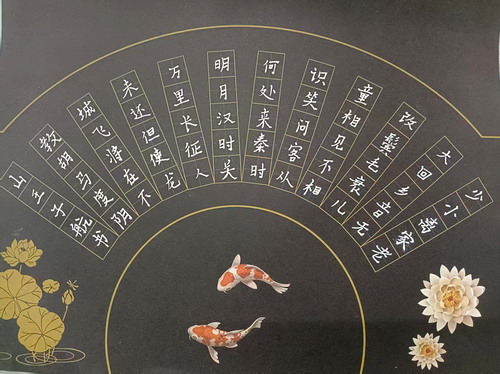 少小离家老
大回乡音无
改鬓毛衰儿
童相见不相
识笑问客从
何处来秦时
明月汉时关
万里长征人
未还但使龙
城飞将在不
教胡马度阴
山王子航书